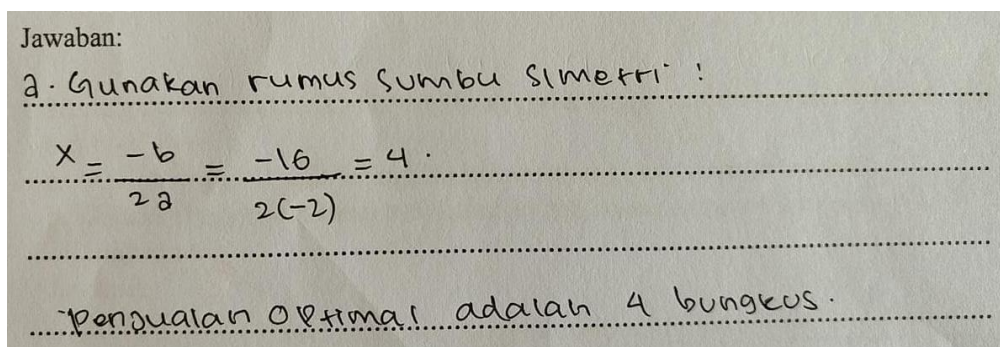 Jawaban:
a. Gunakan rumus sumbu simetri :
x = -b/2a = -16/2(-2) = 4.
Penjualan optimal adalah 4 bungkus.